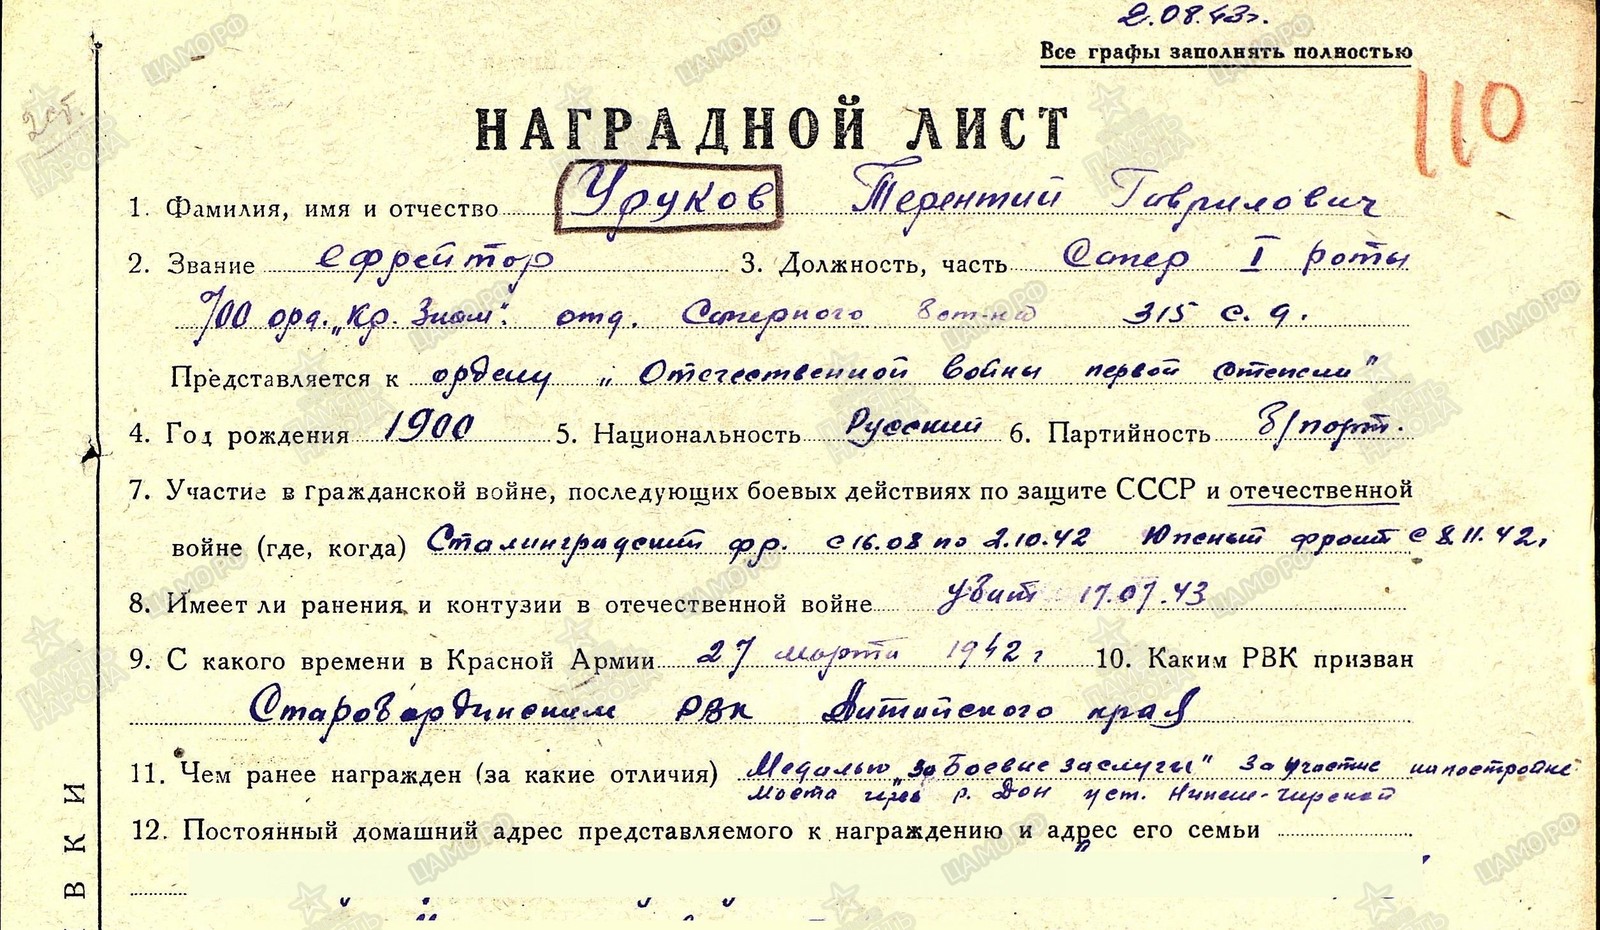 2.08.43г.
Все графы заполнять полностью
110
НАГРАДНОЙ ЛИСТ
1. Фамилия, имя и отчество Уруков Терентий Гаврилович
2. Звание ефрейтор 3. Должность, часть Сапер I роты
700 орд. „Кр. Знам". отд. Саперного Бат-на 315 с. д.
Представляется к ордену „Отечественной войны первой степени"
4. Год рождения 1900 5. Национальность Русский 6. Партийность Б/парт.
7. Участие в гражданской войне, последующих боевых действиях по защите СССР и отечественной
войне (где, когда) Сталинградский фр. с 16.08 по 2.10.42 Южный фронт с 8.11.42г
8. Имеет ли ранения и контузии в отечественной войне убит 17.07.43
9. С какого времени в Красной Армии 27 марта 1942г 10. Каким РВК призван
Старобардинским РВК Алтайского края
11. Чем ранее награжден (за какие отличия) Медалью „За Боевые заслуги" За участие на постройке
моста через р. Дон у ст. Нижне-Чирской
12. Постоянный домашний адрес представляемого к награждению и адрес его семьи
ВКИ
ЦАМО.РФ
ПАМЯТЬ НАРОДА